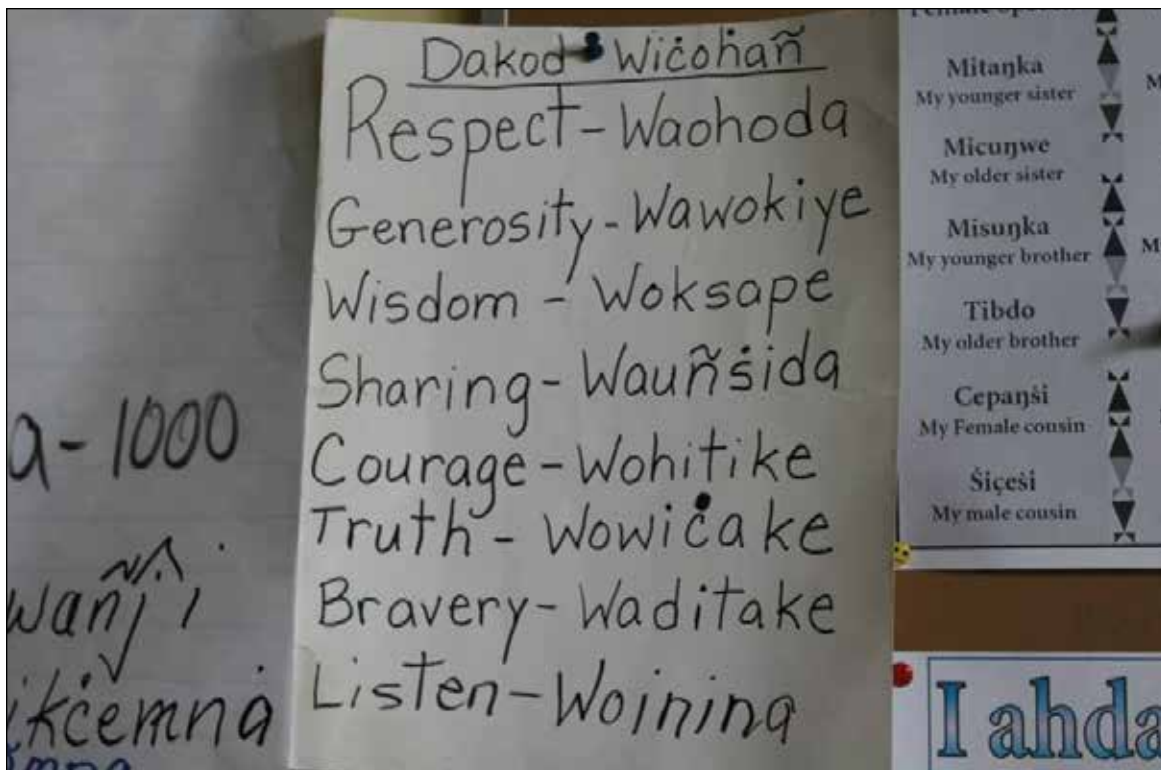 a-1000
wañj i
ikċemna
Dakod Wiċoḣañ
Respect-Waohoda
Generosity-Wawokiye
Wisdom - Woksape
Sharing-Wauñṡida
Courage-Wohitike
Truth - Wowiċake
Bravery-Waditake
Listen-Woinina
Mitaŋka
My younger sister
Micuŋwe
My older sister
Misuŋka
My younger brother
Tibdo
My older brother
Cepaŋṡi
My Female cousin
Ṡiçeṡi
My male cousin
I ahda